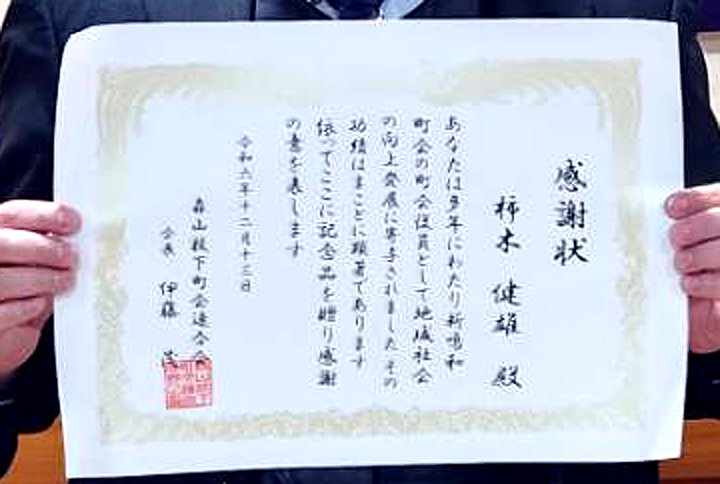 感謝状
柿木 健雄 殿
あなたは多年にわたり新鳴和
町会の町会役員として地域社会
の向上発展に寄与されましたその
功績はまことに顕著であります
依ってここに記念品を贈り感謝
の意を表します
令和六年十二月十三日
森山校下町会連合会
会長 伊藤